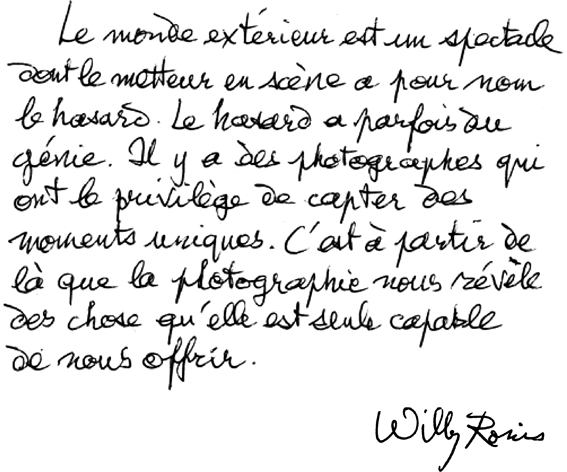 Le monde extérieur est un spectacle
dont le metteur en scène a pour nom
le hasard. Le hasard a parfois du
génie. Il y a des photographes qui
ont le privilège de capter des
moments uniques. C'est à partir de
là que la photographie nous révèle
des chose qu'elle est seule capable
de nous offrir.
Willy Ronis